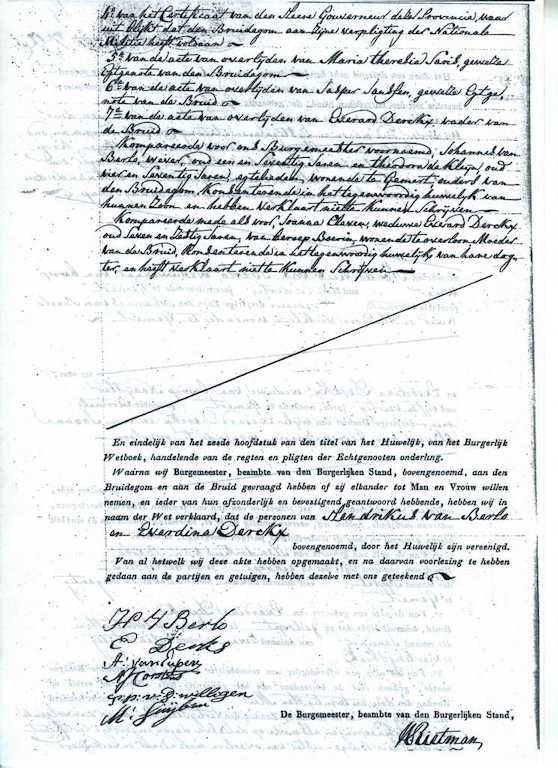 4º van het Certificaat van den Heere Gouverneur dele Provincie, waar
uit blijkt dat den Bruidegom aan zijne verpligting der Nationale
Militie heeft voldaan
5º van de acte van overlyden van Maria Theresia Savil, gewelle
Egtgenote van den Bruidegom
6º van de acte van overlyden van Jasper Janssen, gewelle Egtge,
note van de Bruid
7º van de acte van overlyden van Everard Derckx vader van
de Bruid
Kompareerde voor ons Burgemeester voornoemd, Johannes van
Berlo, Wever, oud een en Seventig Jaren en Theodora de Kleijn, oud
vier en Seventig Jaren, egtelieden, wonende te Gemert, ouders van
den Bruidegom, Konsenterende in het tegenwoordig huwelyk van
hunnen Zoon en hebben verklaart niet te Kunnen Schrijven
Kompareerde mede als voor, Joanna Claxen, weduwe Everard Derckx
oud Seven en Sestig Jaren, van beroep Boerin, wonende te overloon Moeder
van de Bruid, Konsenterende in het tegenwoordig huwelyk van hare dog-
ter, en heeft verklaart niet te Kunnen Schrijven
En eindelijk van het zesde hoofdstuk van den titel van het Huwelijk, van het Burgerlijk
Wetboek, handelende van de regten en pligten der Echtgenooten onderling.
Waarna wij Burgemeester, beambte van den Burgerlijken Stand, bovengenoemd, aan den
Bruidegom en aan de Bruid gevraagd hebben of zij elkander tot Man en Vrouw willen
nemen, en ieder van hun afzonderlijk en bevestigend geantwoord hebbende, hebben wij in
naam der Wet verklaard, dat de personen van Hendrikus van Berlo
en Everdina Derckx
bovengenoemd, door het Huwelijk zijn vereenigd.
Van al hetwelk wij deze akte hebben opgemaakt, en na daarvan voorlezing te hebben
gedaan aan de partijen en getuigen, hebben dezelve met ons geteekend
H V Berlo
E Derks
A. van
Corstens
v. d. willigen
M:
De Burgemeester, beambte van den Burgerlijken Stand,